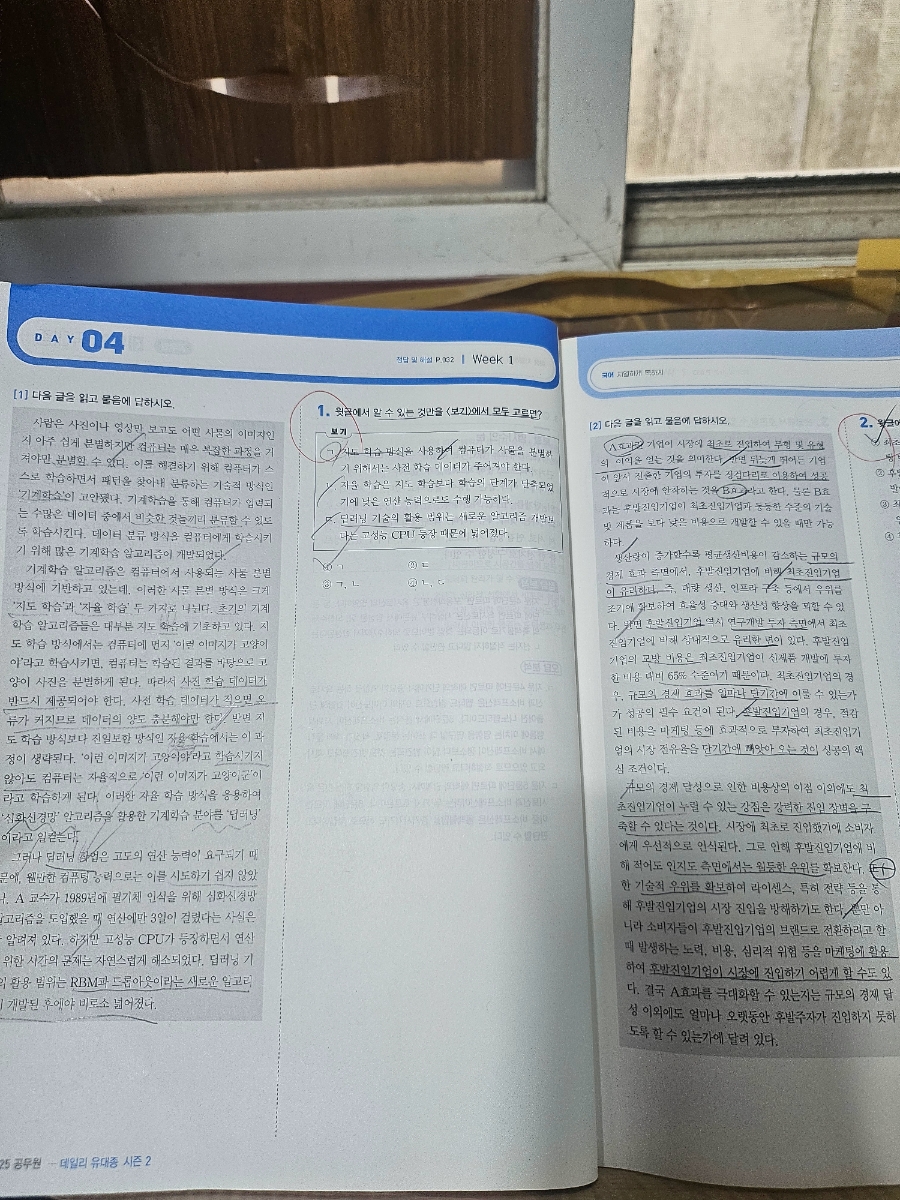 DAY 04
정답 및 해설 P.102 | Week 1
[1] 다음 글을 읽고 물음에 답하시오.
사람은 사진이나 영상만 보고도 어떤 사물의 이미지인
지 아주 쉽게 분별하지만 컴퓨터는 매우 복잡한 과정을 거
쳐야만 분별할 수 있다. 이를 해결하기 위해 컴퓨터가 스
스로 학습하면서 패턴을 찾아내 분류하는 기술적 방식인
'기계학습'이 고안됐다. 기계학습을 통해 컴퓨터가 입력되
는 수많은 데이터 중에서 비슷한 것들끼리 분류할 수 있도
록 학습시킨다. 데이터 분류 방식을 컴퓨터에게 학습시키
기 위해 많은 기계학습 알고리즘이 개발되었다.
기계학습 알고리즘은 컴퓨터에서 사용되는 사물 분별
방식에 기반하고 있는데, 이러한 사물 분별 방식은 크게
'지도 학습'과 '자율 학습' 두 가지로 나뉜다. 초기의 기계
학습 알고리즘들은 대부분 지도 학습에 기초하고 있다. 지
도 학습 방식에서는 컴퓨터에 먼저 '이런 이미지가 고양이
야'라고 학습시키면, 컴퓨터는 학습된 결과를 바탕으로 고
양이 사진을 분별하게 된다. 따라서 사전 학습 데이터가
반드시 제공되어야 한다. 사전 학습 데이터가 적으면 오
류가 커지므로 데이터의 양도 충분해야만 한다. 반면 지
도 학습 방식보다 진일보한 방식인 자율 학습에서는 이 과
정이 생략된다. '이런 이미지가 고양이야'라고 학습시키지
않아도 컴퓨터는 자율적으로 '이런 이미지가 고양이군'이
라고 학습하게 된다. 이러한 자율 학습 방식을 응용하여
'심화신경망' 알고리즘을 활용한 기계학습 분야를 '딥러닝'
이라고 일컫는다.
그러나 딥러닝 작업은 고도의 연산 능력이 요구되기 때
문에, 웬만한 컴퓨팅 능력으로는 이를 시도하기 쉽지 않았
A 교수가 1989년에 필기체 인식을 위해 심화신경망
고리즘을 도입했을 때 연산에만 3일이 걸렸다는 사실은
알려져 있다. 하지만 고성능 CPU가 등장하면서 연산
위한 시간의 문제는 자연스럽게 해소되었다. 딥러닝 기
의 활용 범위는 RBM과 드롭아웃이라는 새로운 알고리
개발된 후에야 비로소 넓어졌다.
1. 윗글에서 알 수 있는 것만을 <보기>에서 모두 고르면?
보기
ㄱ. 지도 학습 방식을 사용하여 컴퓨터가 사물을 분별하
기 위해서는 사전 학습 데이터가 주어져야 한다.
ㄴ. 자율 학습은 지도 학습보다 학습의 단계가 단축되었
기에 낮은 연산 능력으로도 수행 가능하다.
ㄷ. 딥러닝 기술의 활용 범위는 새로운 알고리즘 개발보
다는 고성능 CPU 등장 때문에 넓어졌다.
① ㄱ ② ㄷ
③ ㄱ, ㄴ ④ ㄴ, ㄷ
25 공무원 데일리 유대종 시즌 2
국어
[2] 다음 글을 읽고 물음에 답하시오.
A효과란 기업이 시장에 최초로 진입하여 무형 및 유형
의 이익을 얻는 것을 의미한다. 반면 뒤늦게 뛰어든 기업
이 앞서 진출한 기업의 투자를 징검다리로 이용하여 성공
적으로 시장에 안착하는 것을 B효과라고 한다. 물론 B효
과는 후발진입기업이 최초진입기업과 동등한 수준의 기술
및 제품을 보다 낮은 비용으로 개발할 수 있을 때만 가능
하다.
생산량이 증가할수록 평균생산비용이 감소하는 규모의
경제 효과 측면에서, 후발진입기업에 비해 최초진입기업
이 유리하다. 즉, 대량 생산, 인프라 구축 등에서 우위를
조기에 확보하여 효율성 증대와 생산성 향상을 꾀할 수 있
다. 반면 후발진입기업 역시 연구개발 투자 측면에서 최초
진입기업에 비해 상대적으로 유리한 면이 있다. 후발진입
기업의 모방 비용은 최초진입기업이 신제품 개발에 투자
한 비용 대비 65% 수준이기 때문이다. 최초진입기업의 경
우, 규모의 경제 효과를 얼마나 단기간에 이룰 수 있는가
가 성공의 필수 요건이 된다. 후발진입기업의 경우, 절감
된 비용을 마케팅 등에 효과적으로 투자하여 최초진입기
업의 시장 점유율을 단기간에 빼앗아 오는 것이 성공의 핵
심 조건이다.
규모의 경제 달성으로 인한 비용상의 이점 이외에도 최
초진입기업이 누릴 수 있는 강점은 강력한 진입 장벽을 구
축할 수 있다는 것이다. 시장에 최초로 진입했기에 소비자
에게 우선적으로 인식된다. 그로 인해 후발진입기업에 비
해 적어도 인지도 측면에서는 월등한 우위를 확보한다. 또
한 기술적 우위를 확보하여 라이센스, 특허 전략 등을 통
해 후발진입기업의 시장 진입을 방해하기도 한다. 뿐만 아
니라 소비자들이 후발진입기업의 브랜드로 전환하려고 할
때 발생하는 노력, 비용, 심리적 위험 등을 마케팅에 활용
하여 후발진입기업이 시장에 진입하기 어렵게 할 수도 있
다. 결국 A효과를 극대화할 수 있는지는 규모의 경제 달
성 이외에도 얼마나 오랫동안 후발주자가 진입하지 못하
도록 할 수 있는가에 달려 있다.
2. 윗글에